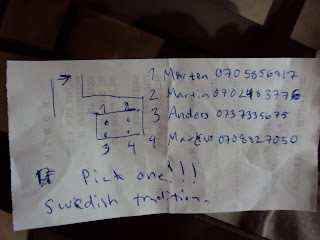 1 Mårten 0705856917
2 Martin 0702483776
3 Anders 0737335675
4 Markus 0708827050
1 2
3 4
Pick one!!!
Swedish tradition.